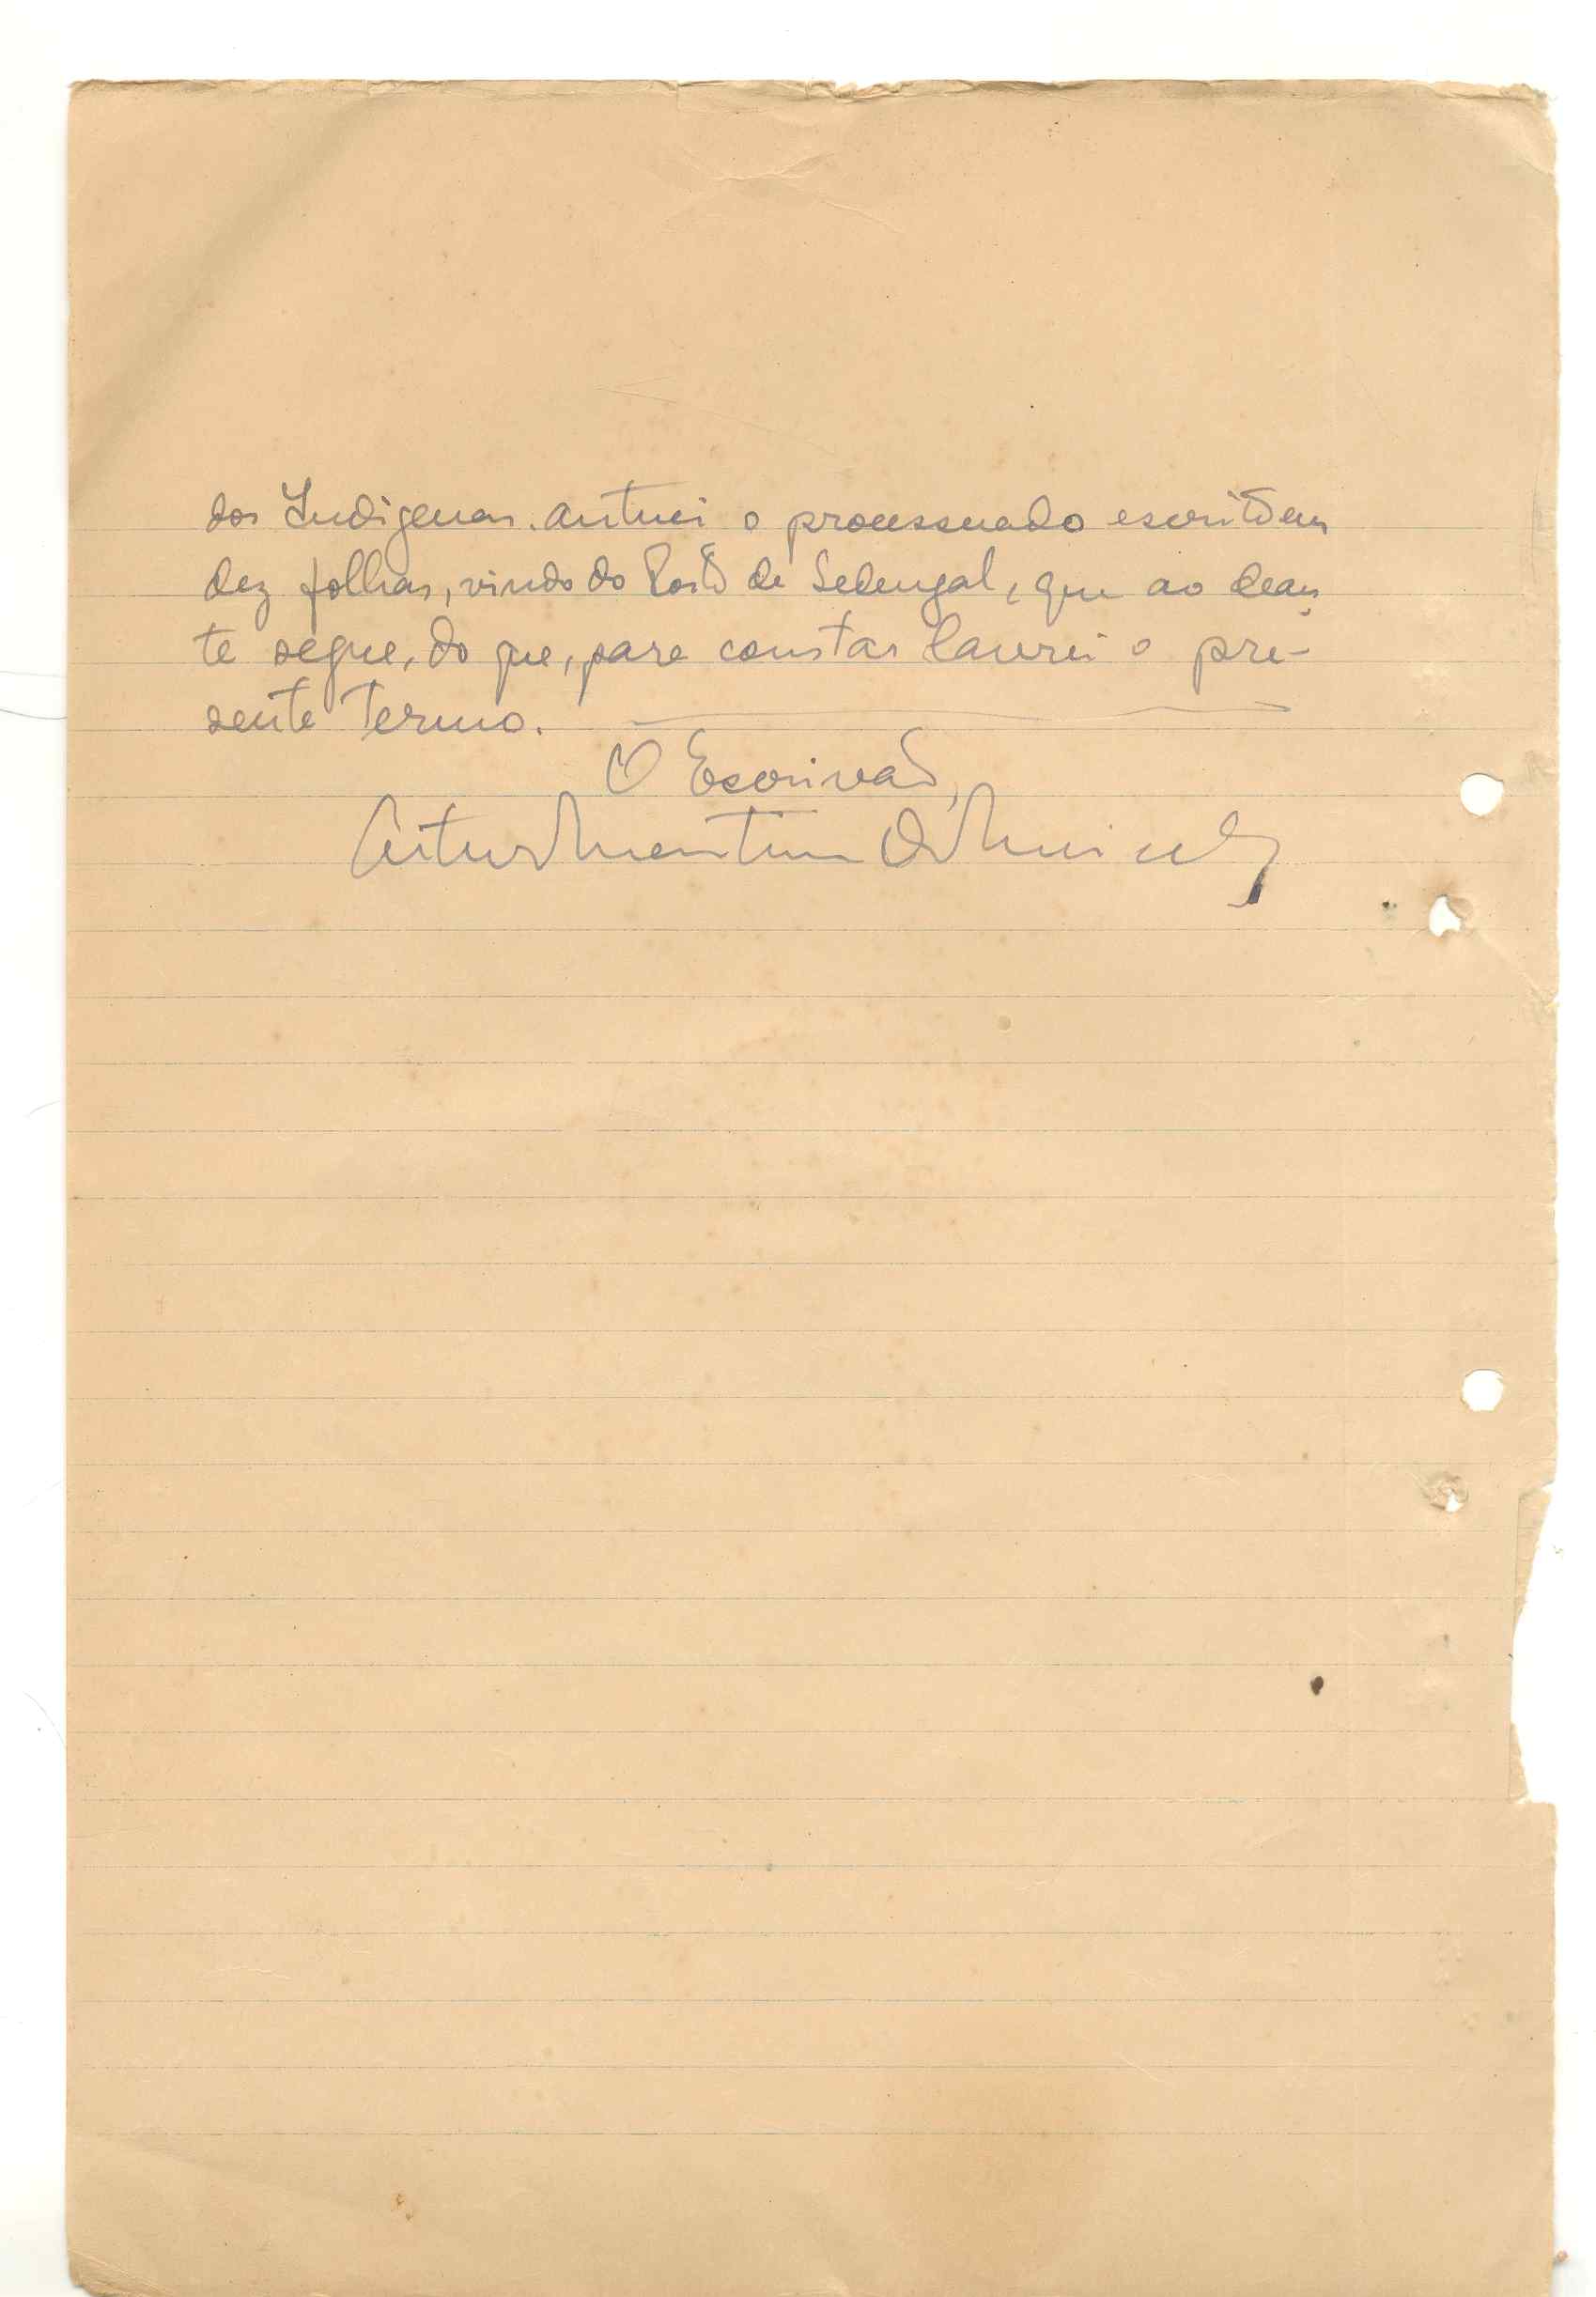 dos Indigenas. autuei o processuado escrito em
dez folhas, vindo do Posto de Sedengal, que ao dean
te segue, do que, para constar lavrei o pre-
sente termo.
O Escrivão,
Artur Martins